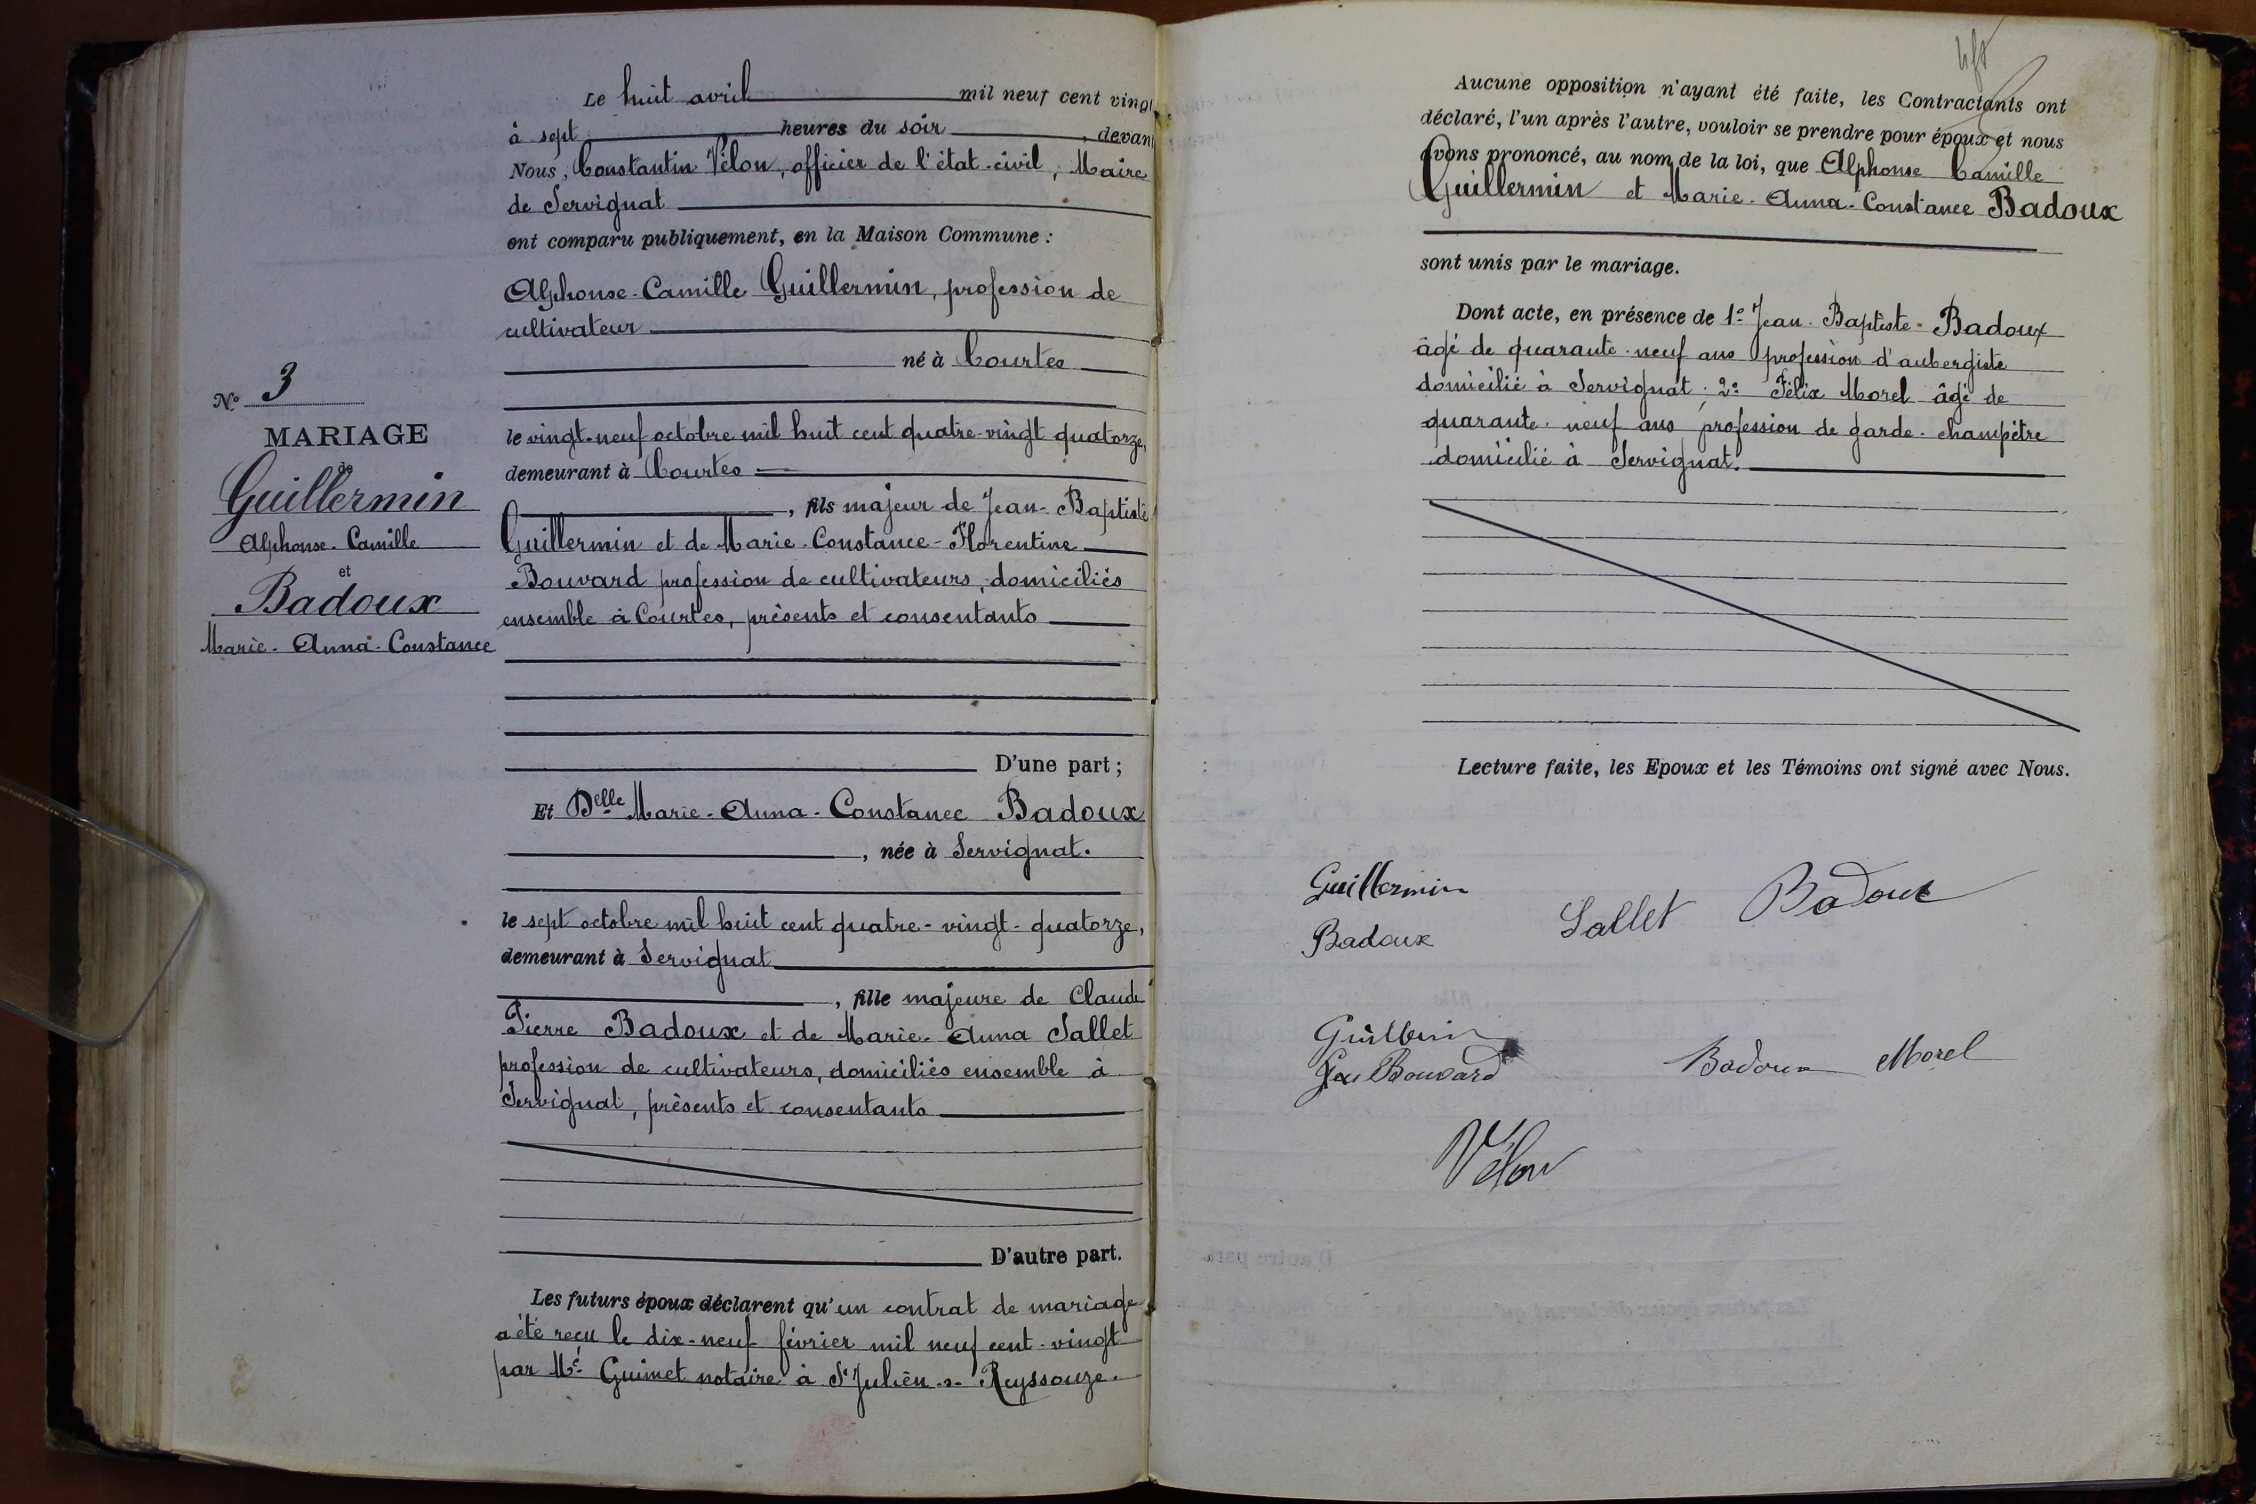 N° 3
MARIAGE
de
Guillermin
Alphonse-Camille
et
Badoux
Marie-Anna-Constance
Le huit avril mil neuf cent vingt
à sept heures du soir, devant
Nous, Constantin Vélon, officier de l'état-civil, Maire
de Servignat
ont comparu publiquement, en la Maison Commune :
Alphonse-Camille Guillermin, profession de
cultivateur
né à Courtes
le vingt-neuf octobre mil huit cent quatre-vingt quatorze,
demeurant à Courtes
, fils majeur de Jean-Baptiste
Guillermin et de Marie-Constance-Florentine
Bouvard profession de cultivateurs, domiciliés
ensemble à Courtes, présents et consentants
D'une part ;
Et Delle Marie-Anna-Constance Badoux
, née à Servignat.
le sept octobre mil huit cent quatre-vingt-quatorze,
demeurant à Servignat
, fille majeure de Claude
Pierre Badoux et de Marie-Anna Sallet
profession de cultivateurs, domiciliés ensemble à
Servignat, présents et consentants
D'autre part.
Les futurs époux déclarent qu'un contrat de mariage
a été reçu le dix-neuf février mil neuf cent-vingt
par Me Guimet notaire à St Julien-s-Reyssouze.
Aucune opposition n'ayant été faite, les Contractants ont
déclaré, l'un après l'autre, vouloir se prendre pour époux et nous
avons prononcé, au nom de la loi, que Alphonse Camille
Guillermin et Marie-Anna-Constance Badoux
sont unis par le mariage.
Dont acte, en présence de 1° Jean-Baptiste-Badoux
âgé de quarante-neuf ans profession d'aubergiste
domicilié à Servignat ; 2° Félix Morel âgé de
quarante-neuf ans profession de garde-champêtre
domicilié à Servignat.
Lecture faite, les Epoux et les Témoins ont signé avec Nous.
Guillermin
Badoux Sallet Badoux
Guillermin
Bouvard Badoux Morel
Vélon